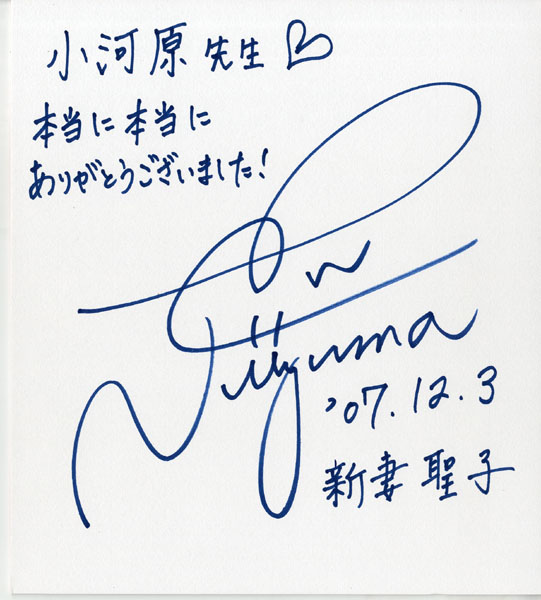 小河原先生♡
本当に本当に
ありがとうございました!
Niizuma
'07.12.3
新妻聖子